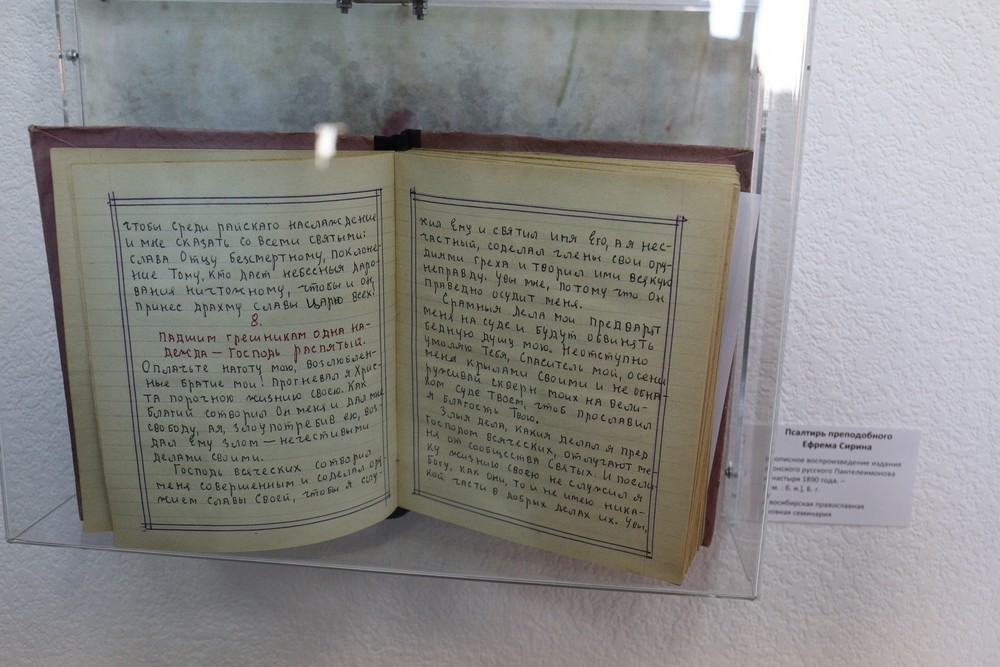 чтобы среди райскаго наслаждение
и мне сказать со всеми святыми:
слава Отцу безсмертному, поклоне-
ние Тому, кто дает небесныя даро-
вания ничтожному, чтобы и он
принес драхму славы ЦАРЮ всех!
8.
Падшим грешникам одна на-
дежда — Господь распятый.
Оплачьте наготу мою, возлюблен-
ные братие мои! Прогневал я Хрис-
та порочною жизнию своею. Как
благий сотворил Он меня и дал мне
свободу, а я, злоупотребив ею, воз-
дал ему злом — нечестивыми
делами своими.
Господь всяческих сотворил
меня совершенным и соделал ору-
жием славы Своей, чтобы я слу-
жил Ему и святил имя Его, а я нес-
частный, соделал члены свои ору-
диями греха и творил ими всякую
неправду. Увы мне, потому что Он
праведно осудит меня.
Срамныя дела мои предварят
меня на суде и будут обвинять
бедную душу мою. Неотступно
умоляю Тебя, Спаситель мой, осени
меня крылами Своими и не обна-
руживай скверн моих на вели-
ком суде Твоем, чтоб прославил
я благость Твою.
Злыя дела, какия делал я пред
Господом всяческих, отлучают ме-
ня от сообщества Святых. И поели-
ку жизнию своею не служил я
Богу, как они, то и не имею ника-
кой части в добрых делах их. Увы,
Псалтирь преподобного
Ефрема Сирина
описное воспроизведение издания
онского русского Пантелеимонова
настыря 1890 года. –
м. : б. и.], Б. г.
восибирская православная
овная семинария